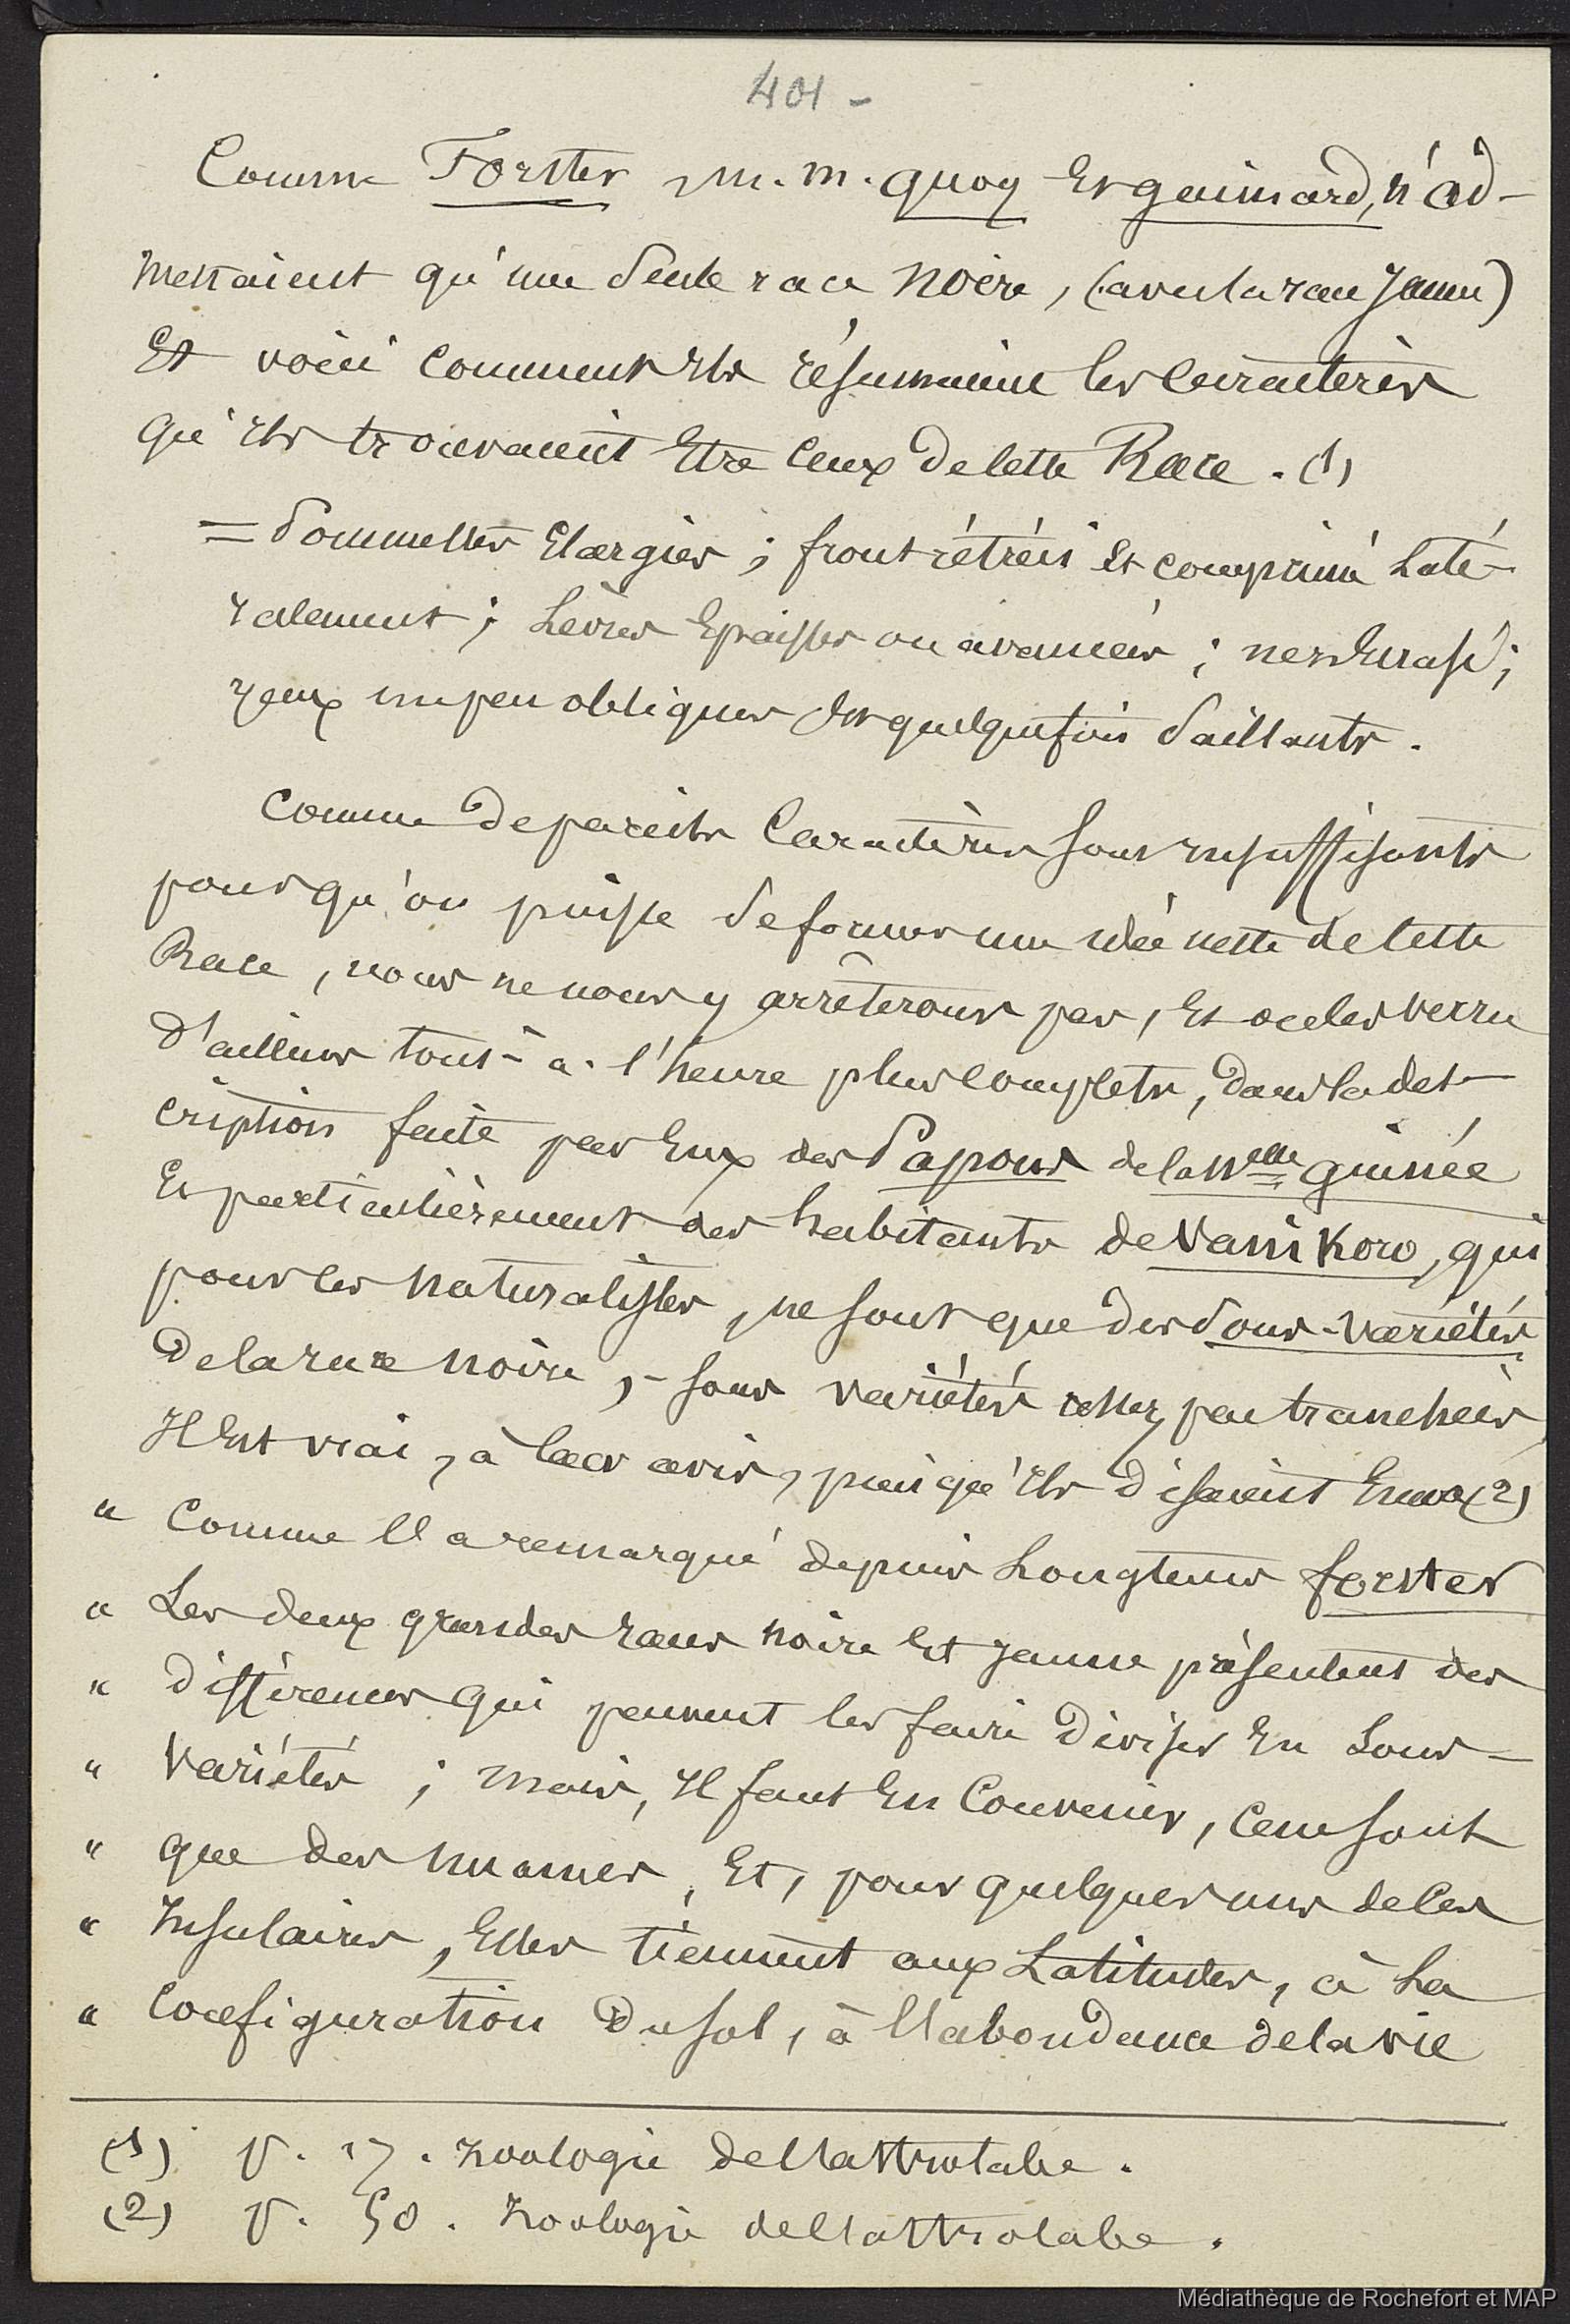 401 -
Comme Forster, M. M. Quoy et gaimard, n'ad-
mettaient qu'une seule race noire, (avec la race Jaune)
Et voici comment ils résumaient les caractères
qu'ils trouvaient être ceux de cette Race. (1)
= Pommettes Elargies ; front rétréci et comprimé laté-
ralement ; Lèvres Epaisses ou avancées ; nez Ecrasé ;
yeux un peu obliques et quelquefois Saillants.
Comme de pareils Caractères sont insuffisants
pour qu'on puisse se former une idée nette de cette
Race, nous ne nous y arrêterons pas, Et on les verra
d'ailleurs tout-à-l'heure plus complets, dans la des-
cription faite par Eux des Papous de la Nelle guinée
Et particulièrement des habitants de Vanikoro, qui
pour les naturalistes, ne sont que des Sous-Variétés
de la race noire, - sous variétés assez peu tranchées,
Il Est vrai, à leur avis, puisqu'ils disaient Encore (2)
" Comme l'a remarqué depuis Longtems forster
" Les deux grandes races noire Et jaune présentent des
" différences qui peuvent les faire diviser En Sous-
" Variétés ; mais, Il faut En Convenir, Ce ne sont
" que des nuances, Et, pour quelques uns de Ces
" Insulaires, Elles tiennent aux Latitudes, à La
" Configuration du sol, à l'abondance de la vie
(1) V. 17. Zoologie de l'astrolabe.
(2) V. 50. Zoologie de l'astrolabe.
Médiathèque de Rochefort et MAP